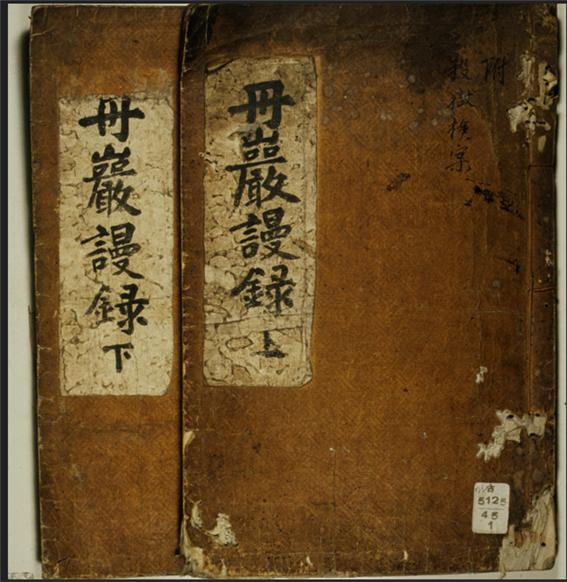 附
殺獄檢案
丹巖謾錄 上
丹巖謾錄 下
古
5125
45
1